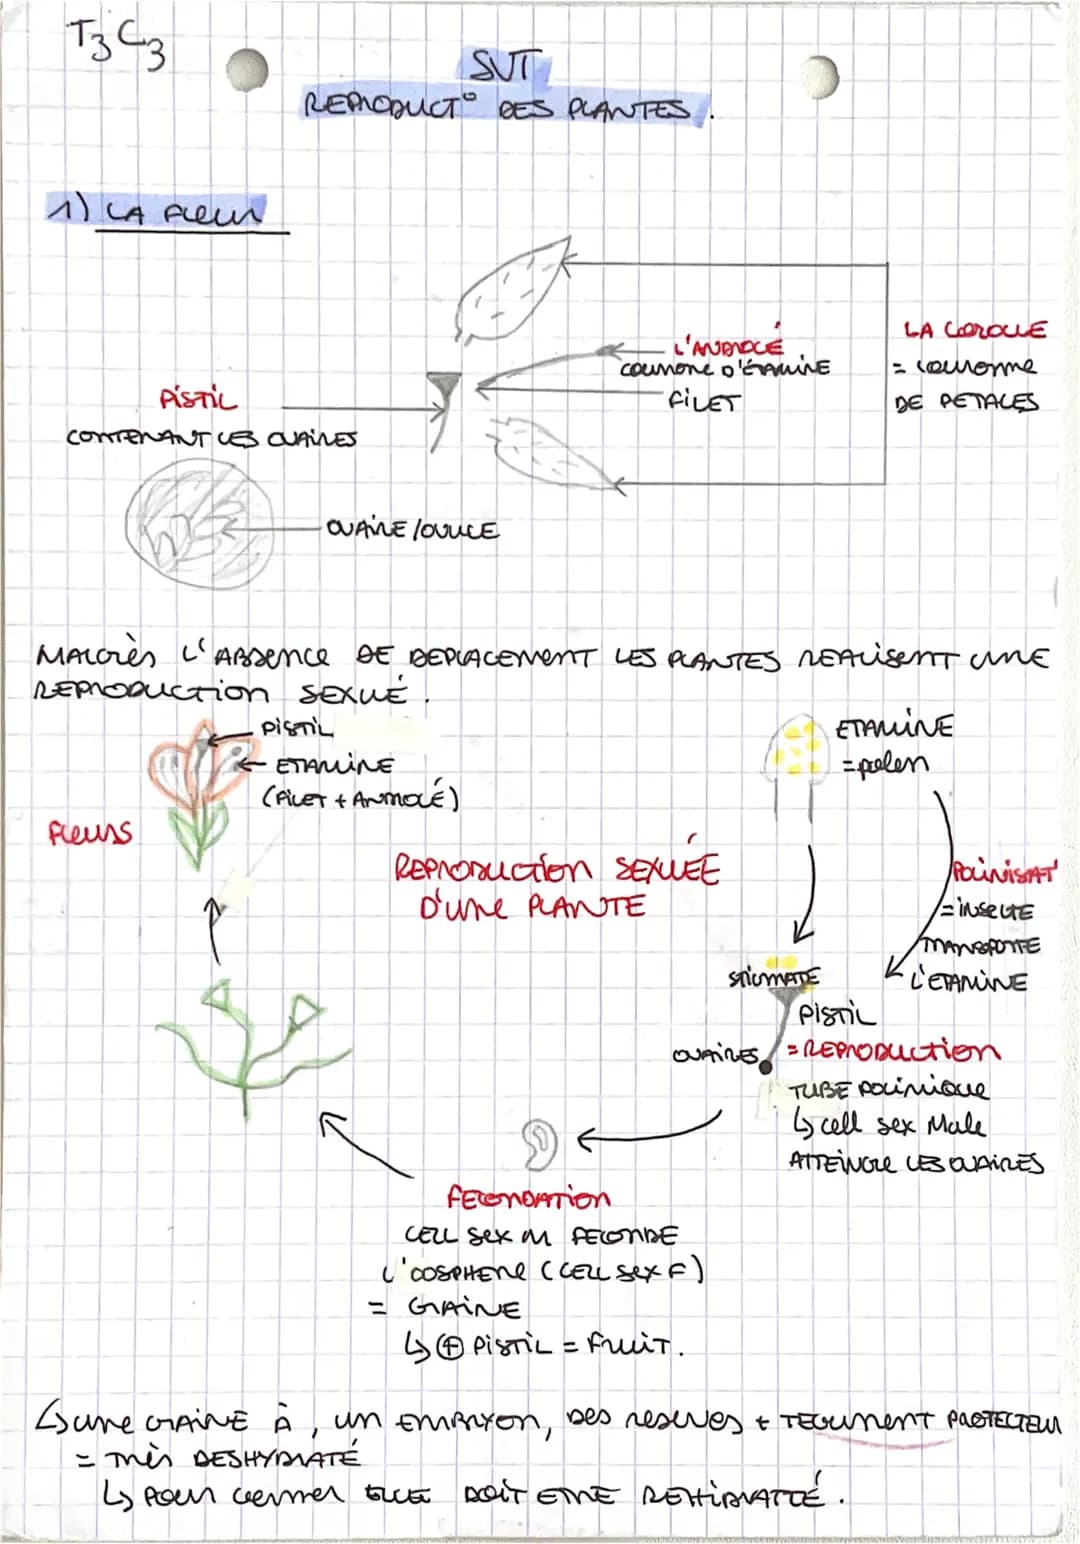 T3C3
SVT
REPRODUCT° DES PLANTES.
1) LA FLEUR
L'ANDROCÉ
COURONE D'ÉTAMINE
FILET
LA COROLLE
= couronne
DE PETALES
PISTIL
CONTENANT LES OVAIRES
OVAIRE/OVULE
MALGRÈS L'ABSENCE DE DEPLACEMENT LES PLANTES REALISENT UNE
REPRODUCTION SEXUÉ.
PISTIL
ETAMINE
(FILET + ANDROCÉ)
FLEURS
REPRODUCTION SEXUÉE
D'UNE PLANTE
ETAMINE
= polen
POLINISAT°
= INSECTE
TRANSPORTE
L'ETAMINE
STIGMATE
PISTIL
OVAIRES
= REPRODUCTION
TUBE POLINIQUE
↳ cell sex Male
ATTEINDRE LES OVAIRES
FECONDATION
CELL SEX M FECONDE
L'OOSPHERE (CELL SEX F)
= GRAINE
↳ ⊕ PISTIL = FRUIT.
↳ une GRAINE À, un EMBRYON, DES RESERVES + TEGUMENT PROTECTEUR
= TRÈS DESHYDRATÉ
↳ POUR GERMER ELLE DOIT ETRE REHIDRATTÉ.